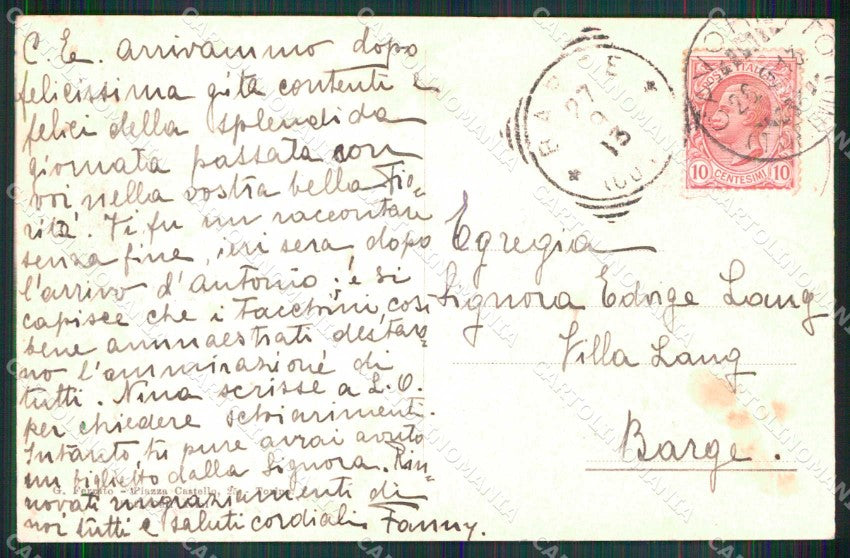 C. E. arrivammo dopo
felicissima gita contenti e
felici della splendida
giornata passata con
voi nella vostra bella Fio-
rità. Vi fu un raccontare
senza fine, ieri sera, dopo
l'arrivo d'Antonio; e si
capisce che i Tacchini, così
bene ammaestrati destan-
no l'ammirazione di
tutti. Nina scrisse a L. O.
per chiedere schiarimenti.
Intanto, tu pure avrai avuto
un biglietto dalla Signora. Rin-
novati ringraziamenti di
noi tutti e saluti cordiali Fanny.
G. Ferrato - Piazza Castello, 25, Torino
BARGE
27 9 13
POSTE ITALIANE
10 CENTESIMI 10
Egregia
Signora Edvige Lang
Villa Lang
Barge.
CARTOLINOMANIA